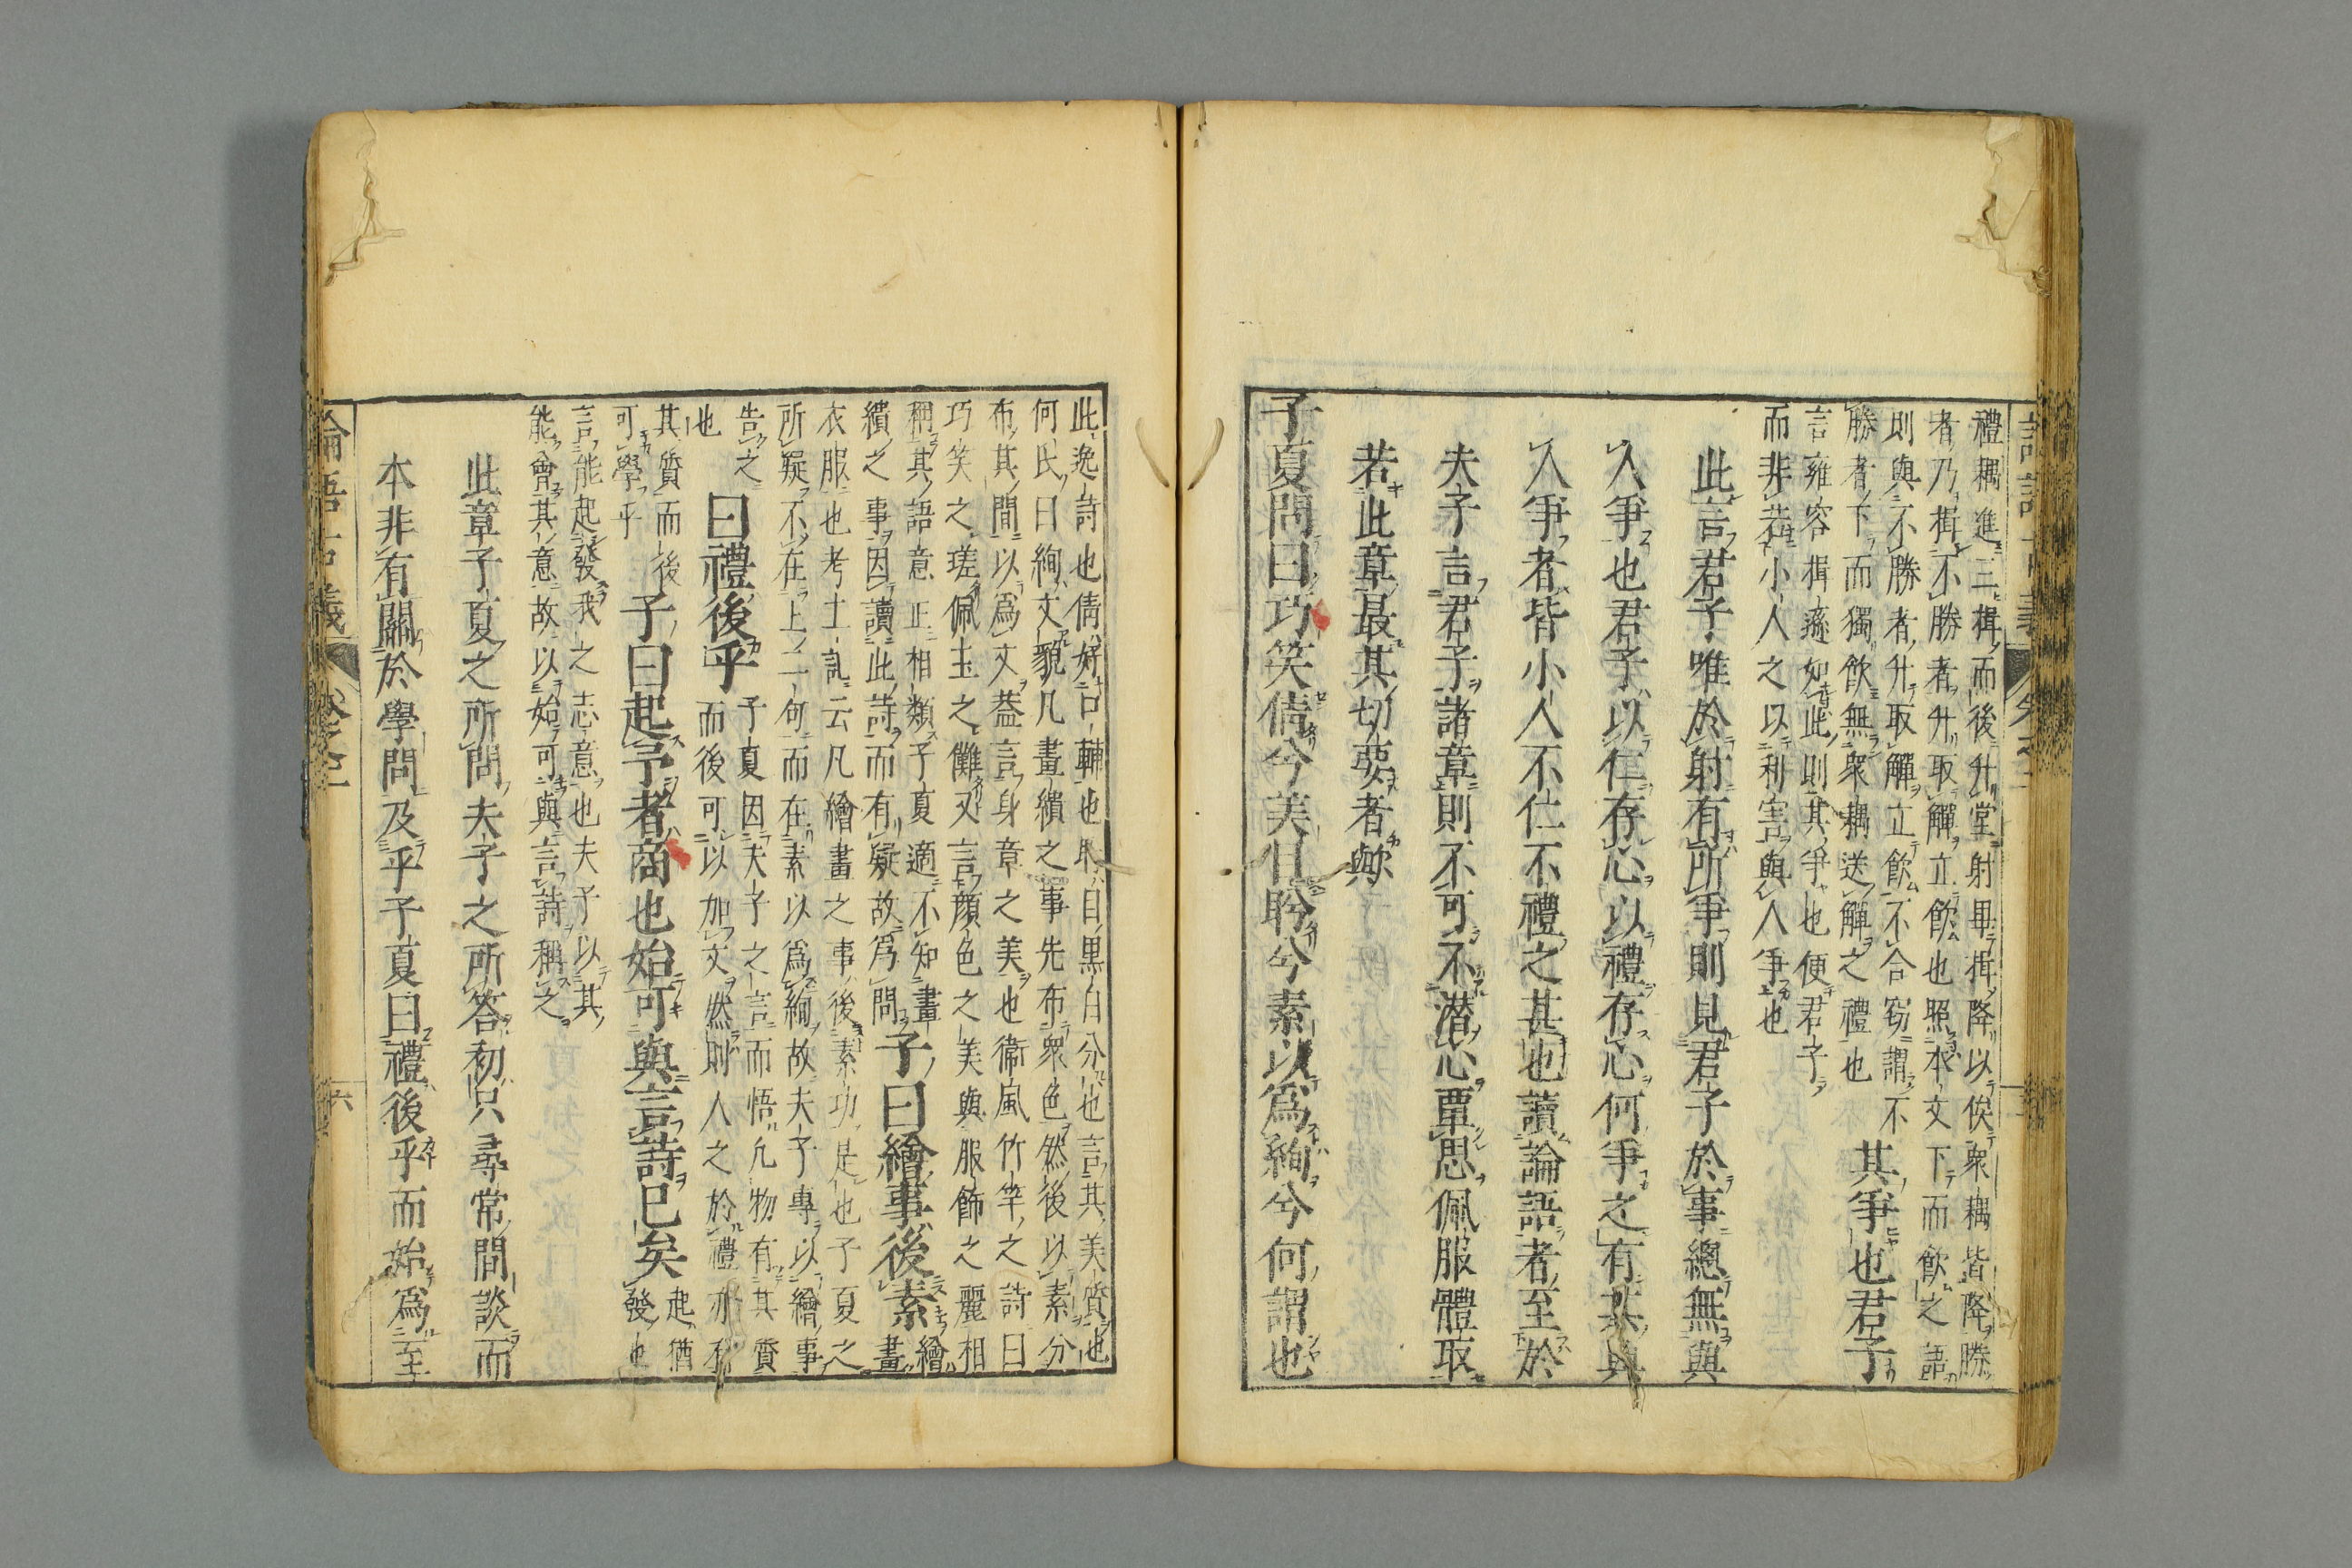 禮耦進三揖而後升堂射畢揖降以俟衆耦皆降勝
者乃揖不勝者升取觶立飮也照本文下而飮之語
則與不勝者升取觶立飮不合窃謂不
勝者下而獨飮無衆耦送觶之禮也
其爭也君子
言雍容揖遜如此則其爭也便君子
而非若小人之以利害與人爭也
此言君子唯於射有所爭則見君子於事總無與
人爭也君子以仁存心以禮存心何爭之有其與
人爭者皆小人不仁不禮之甚也讀論語者至於
夫子言君子諸章則不可不潜心覃思佩服體取
若此章最其切要者歟
子夏問曰巧笑倩兮美目盼兮素以爲絢兮何謂也
此逸詩也倩好口輔也盼目黒白分也言其美質也
何氏曰絢文貌凡畫繢之事先布衆色然後以素分
布其間以爲文葢言身章之美也衞風竹竿之詩曰
巧笑之瑳佩玉之儺又言顔色之美與服飾之麗相
稱其語意正相類子夏適不知畫
繢之事因讀此詩而有疑故爲問
子曰繪事後素
繪畫
衣服也考工記云凡繪畫之事後素功是也子夏之
所疑不在上二句而在素以爲絢故夫子專以繪事
告之
也
曰禮後乎
子夏因夫子之言而悟凢物有其質
而後可以加文然則人之於禮亦有
其質而後
可學乎
子曰起予者商也始可與言詩已矣
起猶
發也
言能起發我之志意也夫子以其
能會其意故以始可與言詩稱之
此章子夏之所問夫子之所答初只尋常間談而
本非有關於學問及乎子夏曰禮後乎而始爲至
論語古義
卷之二
六